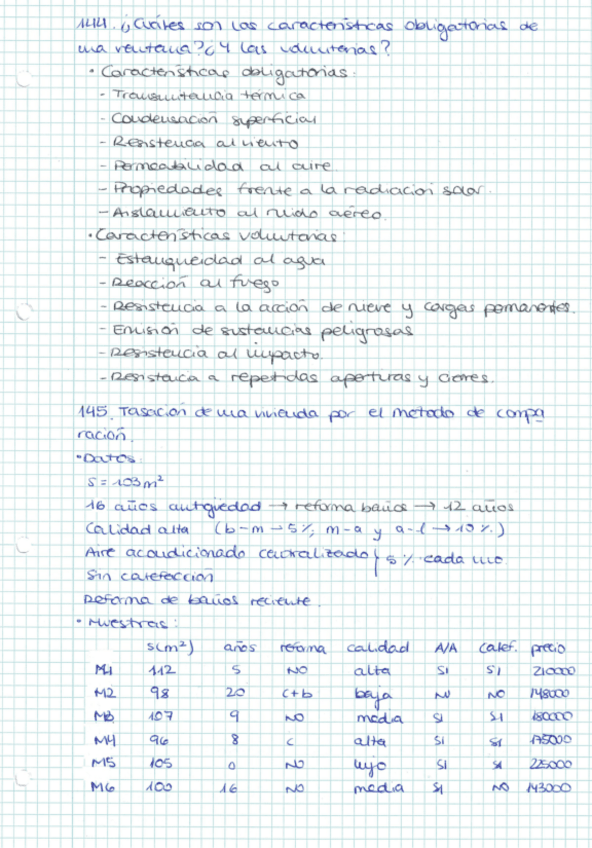 144. ¿Cuáles son las características obligatorias de
una ventana? ¿Y las voluntarias?
· Características obligatorias:
- Transmitancia térmica
- Condensación superficial
- Resistencia al viento
- Permeabilidad al aire.
- Propiedades frente a la radiación solar.
- Aislamiento al ruido aéreo.
· Características voluntarias:
- Estanqueidad al agua
- Reacción al fuego
- Resistencia a la acción de nieve y cargas permanentes.
- Emisión de sustancias peligrosas
- Resistencia al impacto.
- Resistencia a repetidas aperturas y cierres.
145. Tasación de una vivienda por el metodo de compa
ración.
· Datos:
S = 103 m²
16 años antigüedad → reforma baños → 12 años
Calidad alta (b-m → 5%, m-a y a-l → 10%.)
Aire acondicionado centralizado } 5% cada uno.
Sin calefacción
Reforma de baños reciente.
· Muestras:
S(m²) años reforma calidad A/A Calef. precio
M1 112 5 NO alta SI SI 210000
M2 98 20 C+b baja NO NO 148000
M3 107 9 NO media SI SI 180000
M4 96 8 C alta SI SI 175000
M5 105 0 NO lujo SI SI 225000
M6 100 16 NO media SI NO 143000